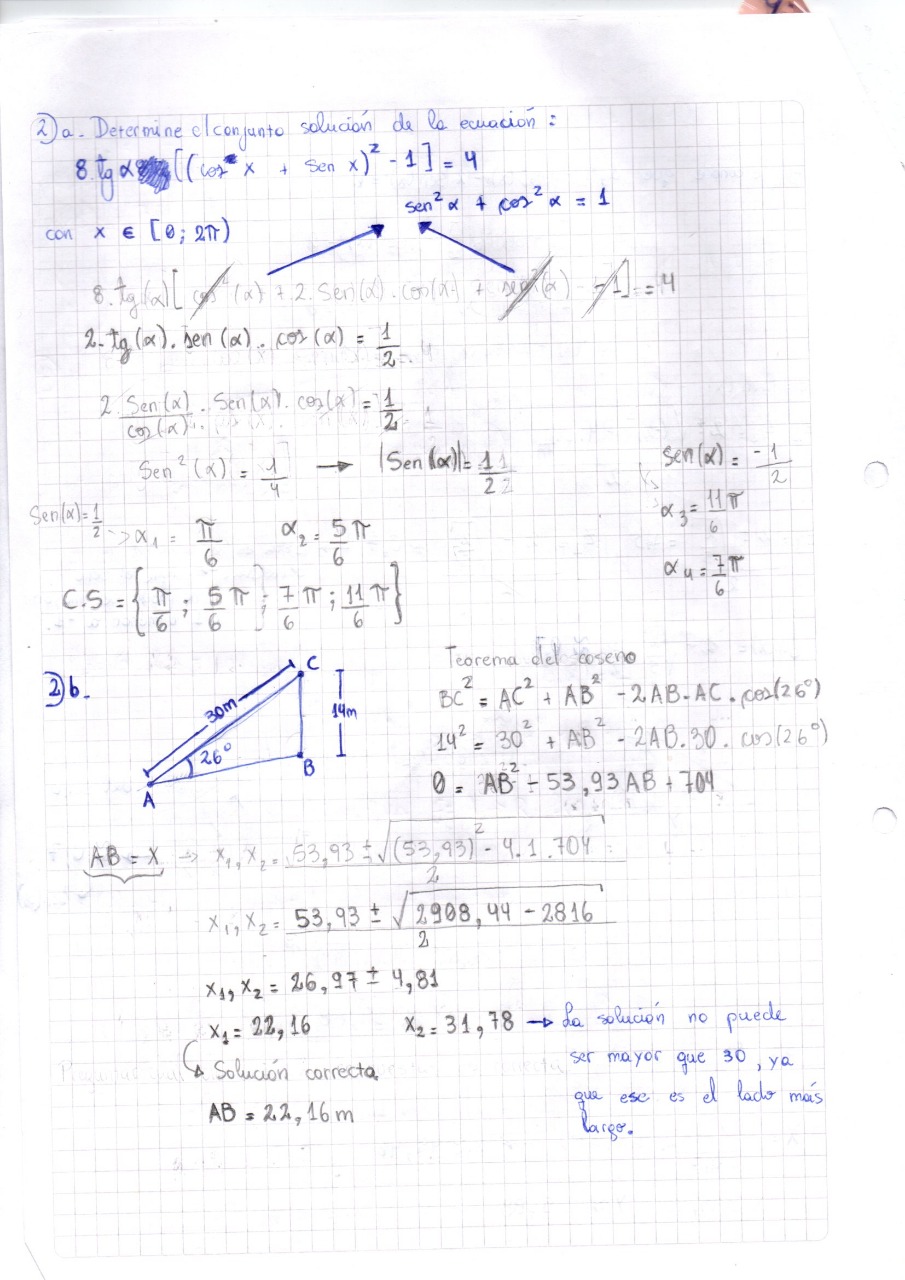 2)a. Determine el conjunto solución de la ecuación:
8.tg α [(cos x + sen x)² - 1] = 4
sen² α + cos² α = 1
con x ∈ [0; 2π)
8.tg(α)[cos²(α) + 2.Sen(α).cos(α) + sen²(α) - 1] = 4
2.tg(α).sen(α).cos(α) = 1/2
2.Sen(α)/cos(α).Sen(α).cos(α) = 1/2
Sen²(α) = 1/4 → |Sen(α)| = 1/2
Sen(α) = -1/2
α₃ = 11/6 π
α₄ = 7/6 π
Sen(α) = 1/2
→ α₁ = π/6 α₂ = 5/6 π
C.S = {π/6; 5/6 π; 7/6 π; 11/6 π}
2)b.
C
30m
14m
26°
B
A
Teorema del coseno
BC² = AC² + AB² - 2AB.AC.cos(26°)
14² = 30² + AB² - 2AB.30.cos(26°)
0 = AB² - 53,93AB + 704
AB = X → x₁, x₂ = (53,93 ± √((53,93)² - 4.1.704))/2
x₁, x₂ = (53,93 ± √(2908,44 - 2816))/2
x₁, x₂ = 26,97 ± 4,81
x₁ = 22,16 x₂ = 31,78 → La solución no puede
ser mayor que 30, ya
que ese es el lado más
largo.
↳ Solución correcta
AB = 22,16m